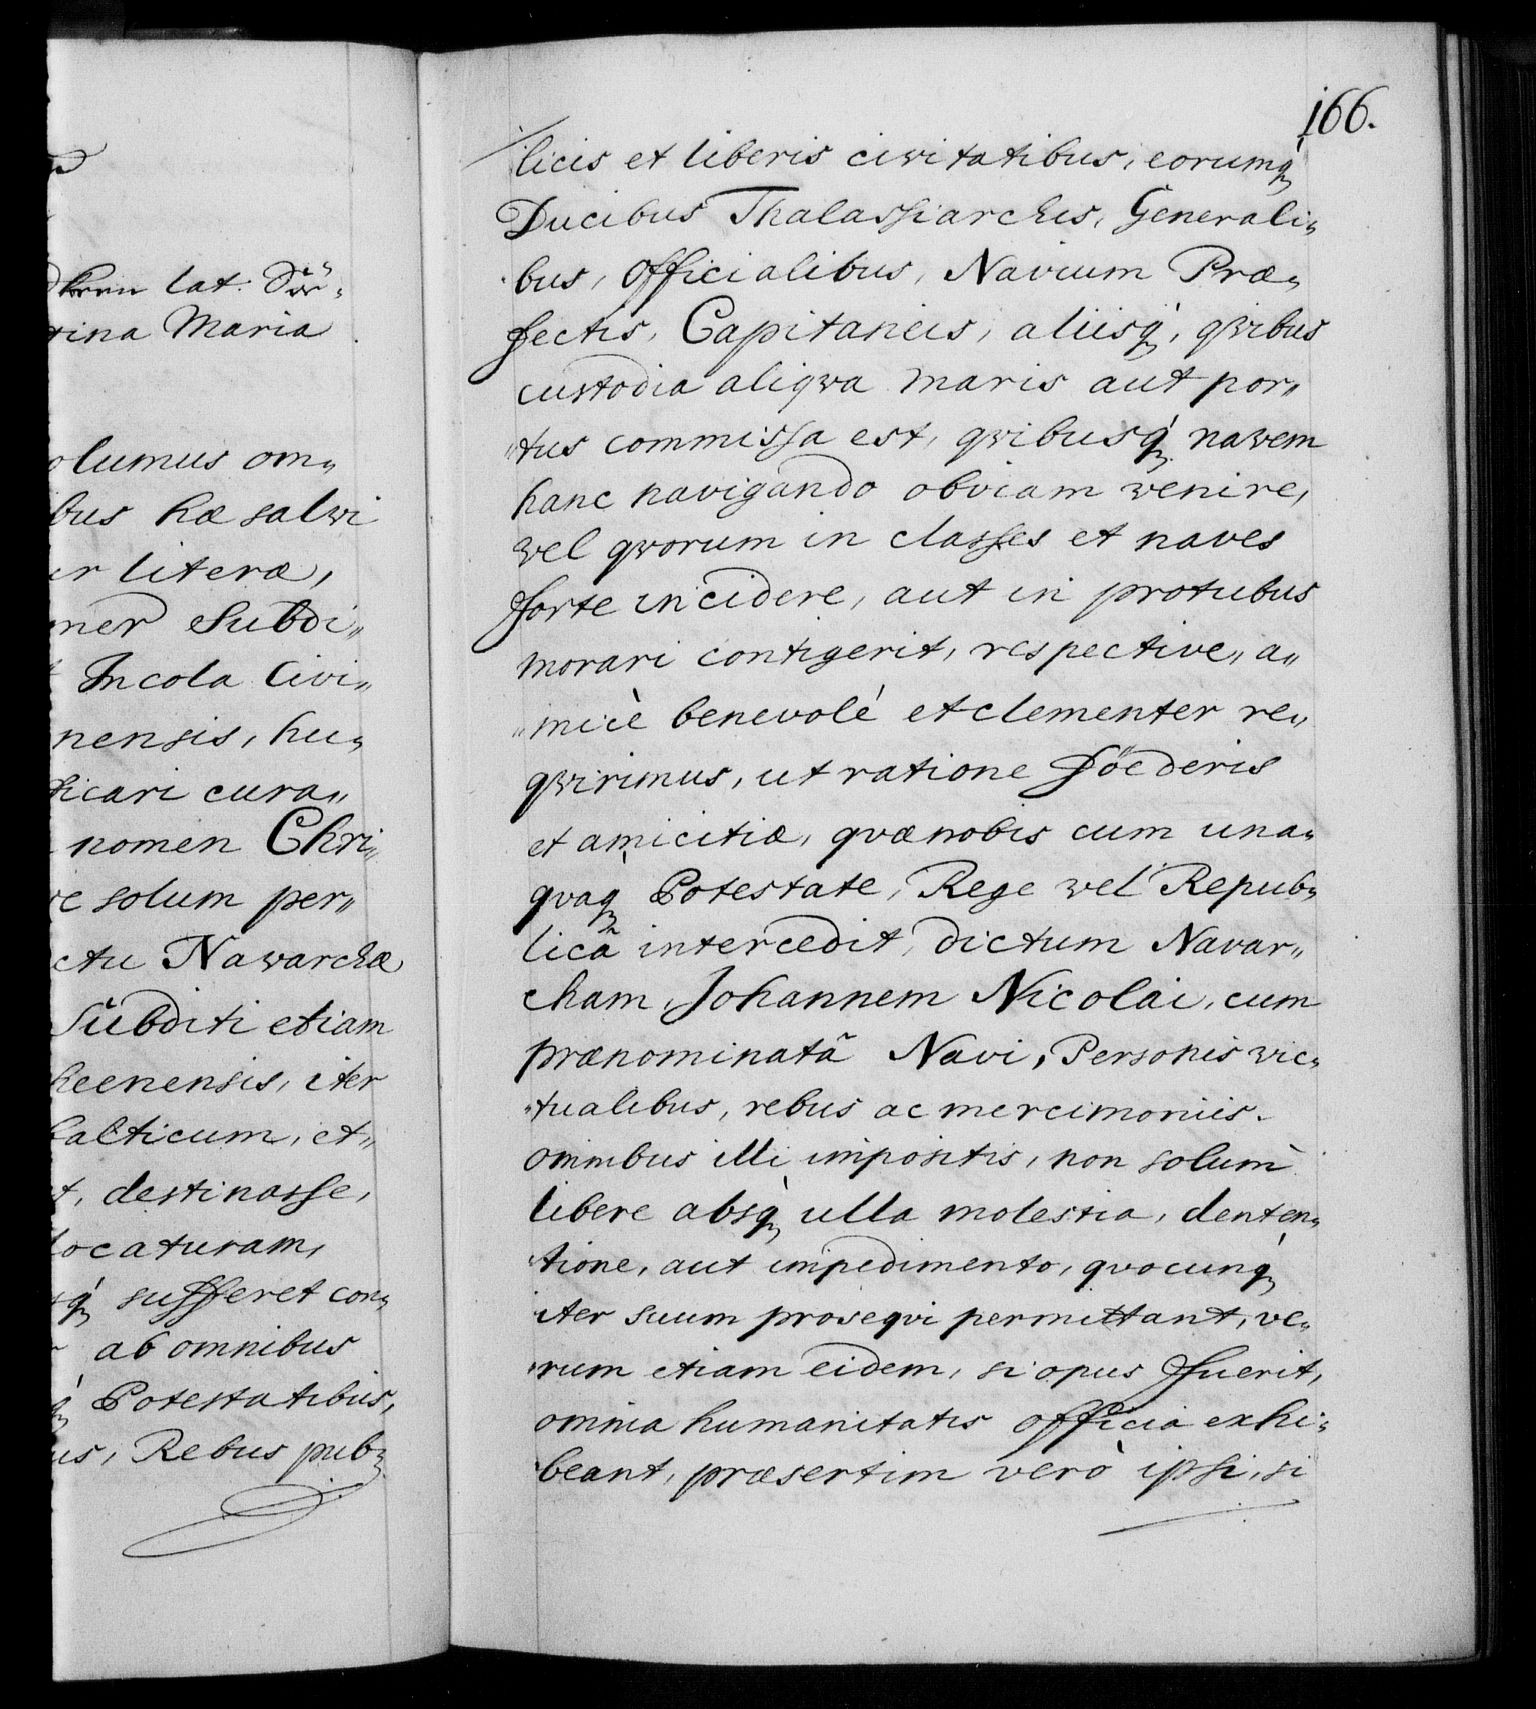 lat: Sör-
tina Maria
olumus om„
bus hæ salvi
er literæ,
ner Subdi„
Incola Civi„
nensis, hu„
ficari cura„
nomen Chri„
re solum per„
ctu Nawarchæ
Subditi etiam
heenensis, iter
balticum, et„
t, destinasse,
locaturam,
q́ sufferet con„
ab omnibus
Potestatibus,
us, Rebus pub„
166.
licis et liberis civitatibus, eorumq́
Ducibus Thalassiarchis, Generali„
bus, Officialibus, Navium Præ„
fectis, Capitaneis, aliisq́, qvibus
custodia aliqva maris aut por„
„tus commissa est, qvibusq́ navem
hanc navigando obviam venire,
vel qvorum in classes et naves
forte incidere, aut in protubus
morari contigerit, respective„ a„
„micè benevolé et clementer re„
qvirimus, ut ratione Föederis
et amicitiæ, qvæ nobis cum una„
qvaq́ Potestate, Rege vel Repub„
licã intercedit, dictum Navar„
cham, Johannem Nicolai, cum
prænominatã Navi, Personis vic„
„tualibus, rebus ac mercimoniis.
omnibus illi impositis, non solum
libere absq́ ulla molestia, denten„
tione, aut impedimento, qvocunq́
iter suum proseqvi permittant, ve„
„rum etiam eidem, si opus fuerit,
omnia humanitatis officia exhi„
beant, præsertim verò ipsi, si